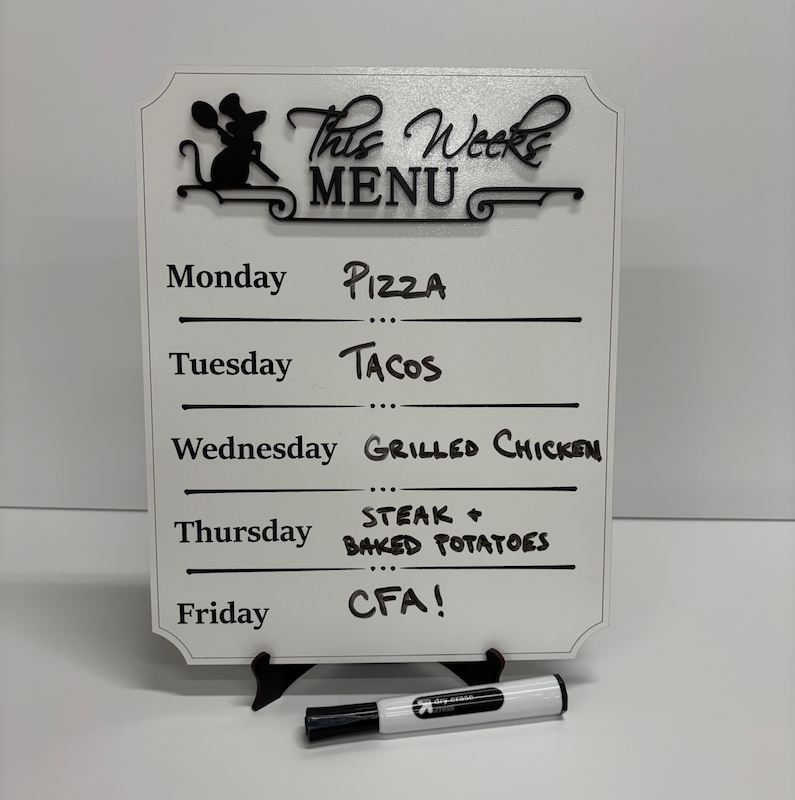 This Weeks
MENU
Monday PIZZA
Tuesday TACOS
Wednesday GRILLED CHICKEN
Thursday STEAK +
BAKED POTATOES
Friday CFA!
dry erase